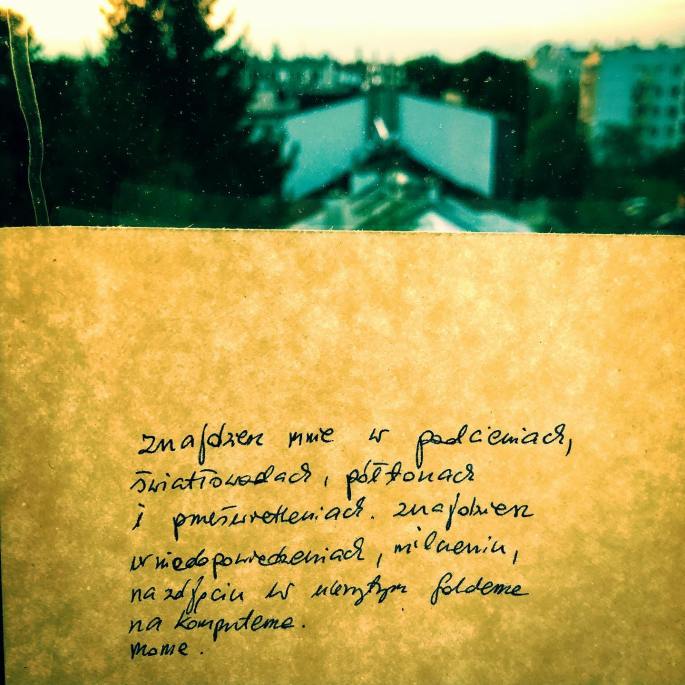 znajdziesz mnie w podcieniach,
światłowodach, półtonach
i prześwietleniach. znajdziesz
w niedopowiedzeniach, milczeniu,
na zdjęciu w ukrytym folderze
na komputerze.
może.